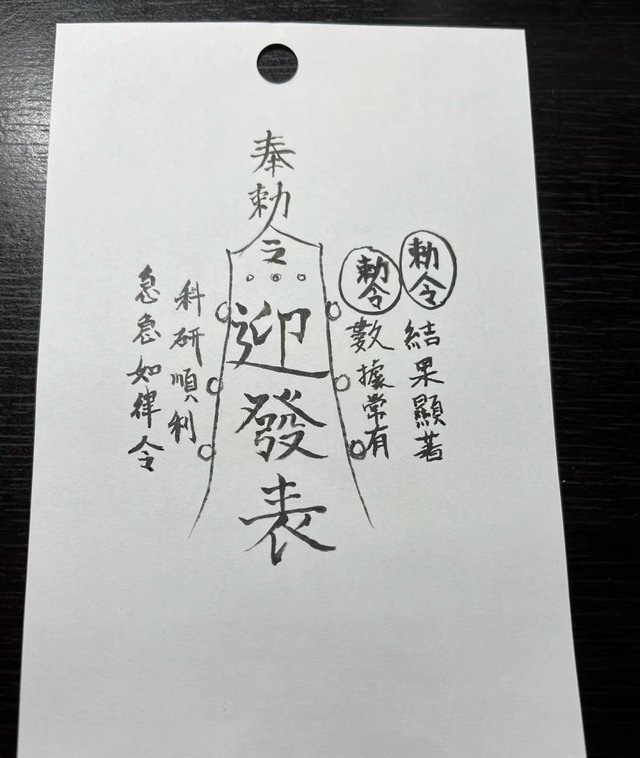 勅令結果顯著
勅令數據常有
奉勅令
迎發表
科研順利
急急如律令